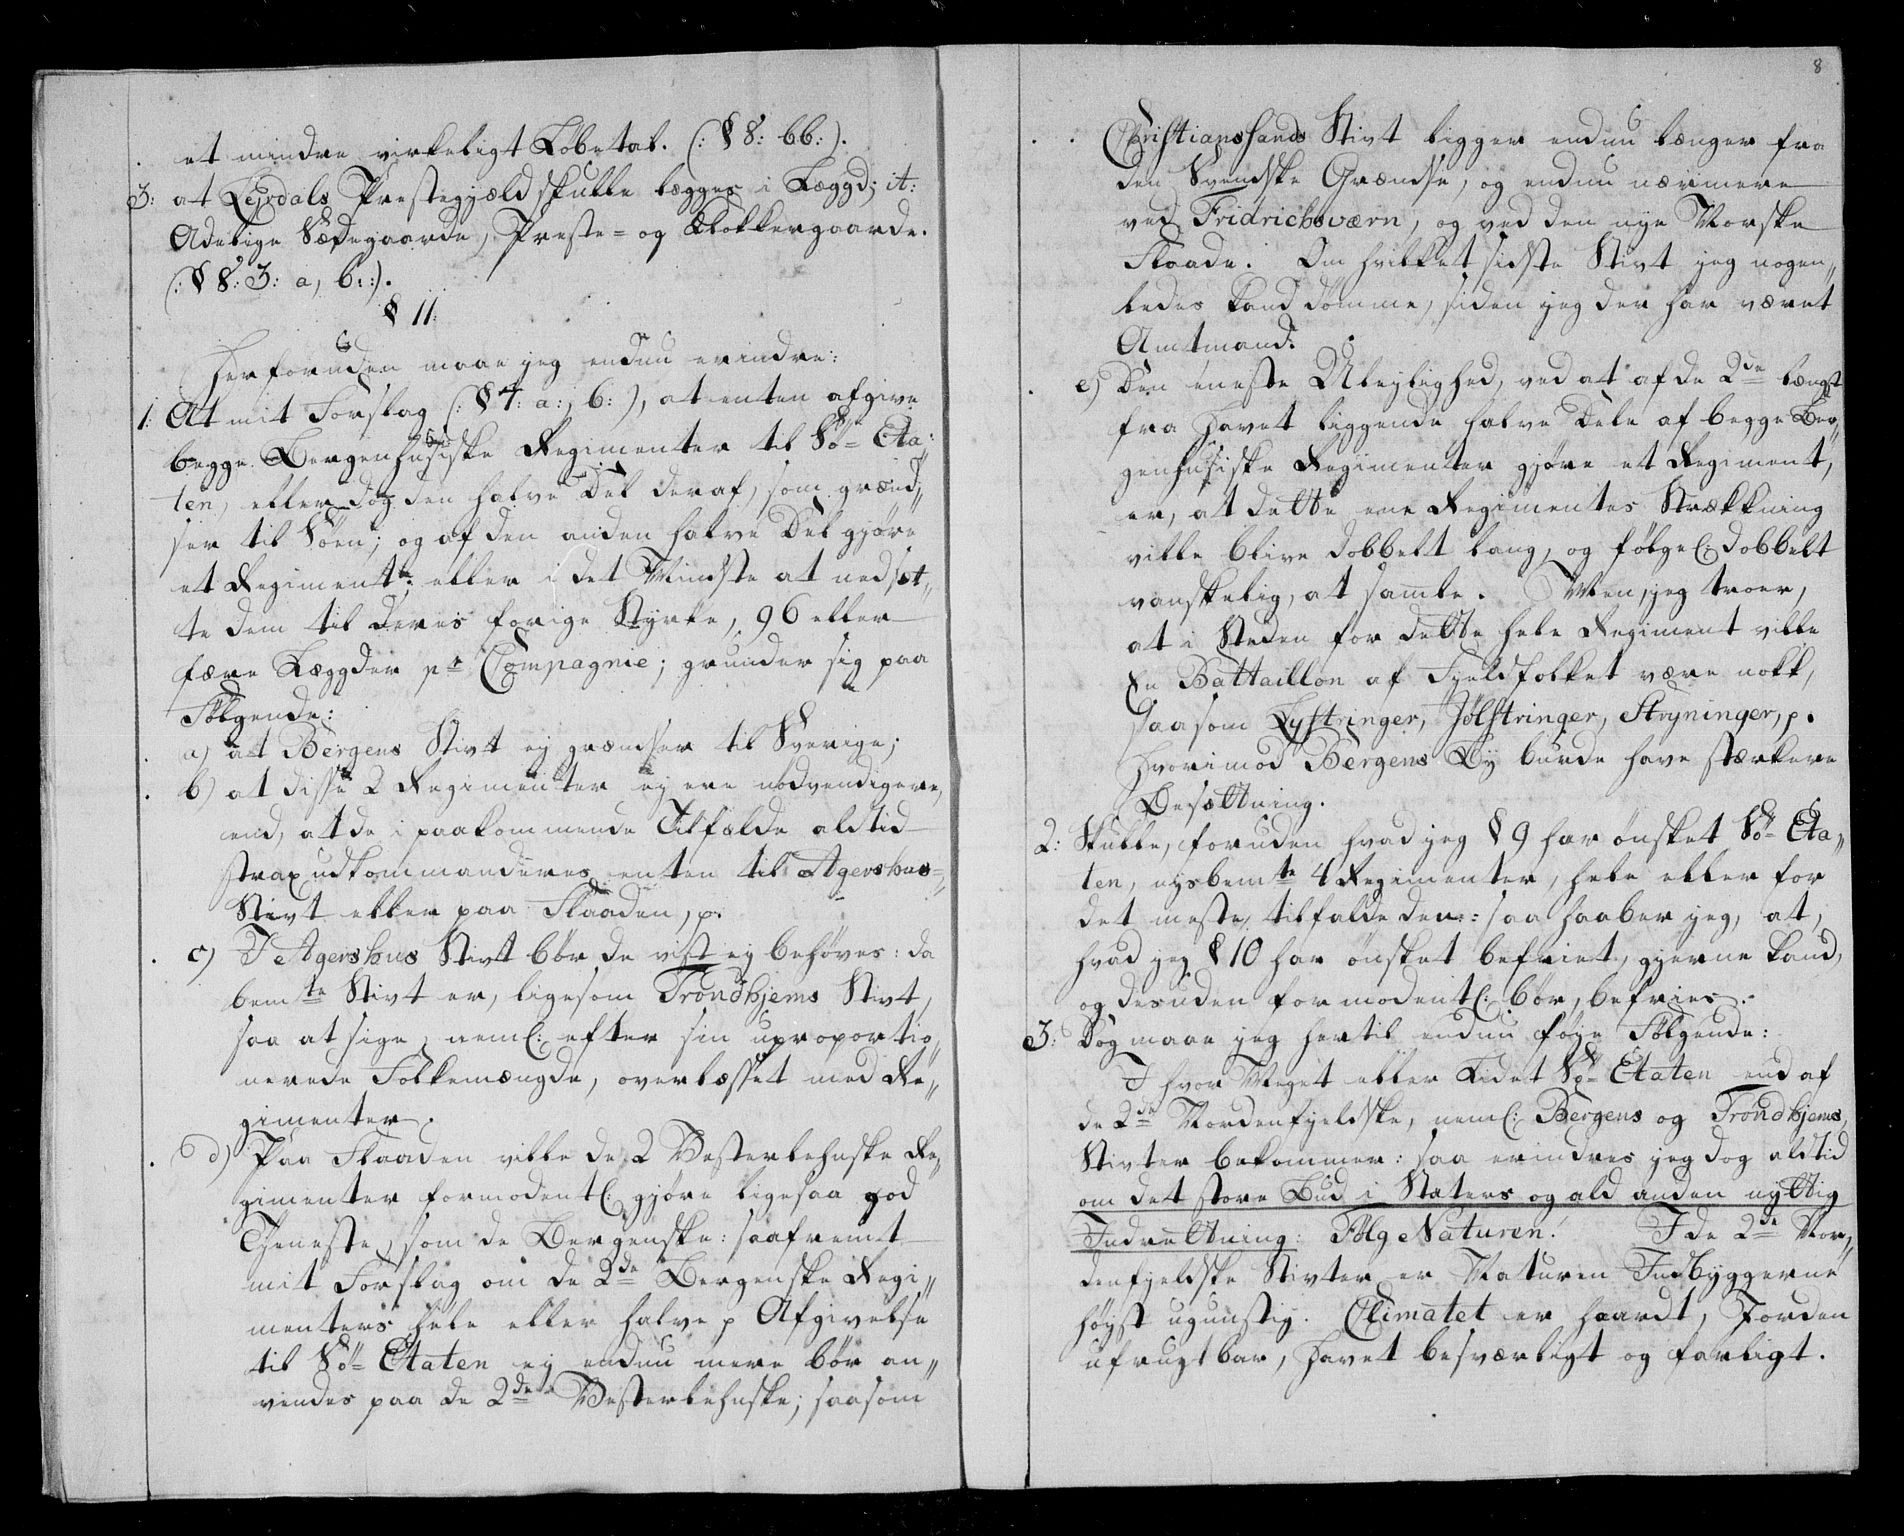 et mindre virkeligt Løbetal. (: § 8: bb:).
3: at Leirdals Præstegjæld skulle lægges i Læggd; it:
Adelige Sædegaarde, Præste- og Klokkergaarde.
(: § 8: 3: a, b::).
§ 11:
Herforuden maae jeg endnu erindre:
1: At mit Forslag (: § 7: a:, b: ), at enten afgive
begge Bergenhusiske Regimenter til Sö- Eta-
ten, eller dog den halve Del deraf, som grænd-
ser til Söen; og af den anden halve Del gjøre
et Regiment; eller i det Mindste at nedsæt-
te dem til deres forige Styrke, 96 eller
færre Læggder pr Compagnie; grunder sig paa
Følgende:
a) at Bergens Stivt ej grændser til Sverige;
b) at disse 2 Regimenter ej ere nødvendigere,
end, at de i paakommende Tilfælde altid
strax udkommanderes enten til Agershus-
Stivt eller paa Flaaden, p.
c) I Agershus Stivt bör de vist ej behøves: da
bemte Stivt er, ligesom Trondhjems Stivt,
saa at sige, neml: efter sin uproportio-
nerede Folkemængde, overlæsset med Re-
gimenter.
d) Paa Flaaden ville de 2 Vesterlehnske Re-
gimenter formodentl: gjøre ligesaa god
Tjeneste, som de Bergenske: saafremt
mit Forslag om de 2de Bergenske Regi-
menters hele eller halve p Afgivelse
til Sö- Etaten ej endnu mere bör an-
vendes paa de 2de Vesterlehnske; saasom
8
Christianssands Stivt ligger endnu længer fra
den Svendske Grændse, og endnu nærmere
ved Fridrichsværn, og ved den nye Norske
Flaade. Om hvilket sidste Stivt jeg nogen-
ledes kand dømme, siden jeg der har været
Amtmand.
e) Den eneste Ulejlighed, ved at af de 2de længst
fra Havet liggende halve Dele af begge Ber-
genhusiske Regimenter gjøre et Regiment,
er, at dette ene Regimentes Strækkning
ville blive dobbelt lang, og følgel: dobbelt
vanskelig, at samle. Men, jeg troer,
at i Steden for dette hele Regiment ville
En Battaillon af Fjeldfolket være nokk,
saasom Lystringer, Jølstringer, Stryninger, p.
Hvorimod Bergens By burde have stærkere
Besættning.
2: Skulle, foruden hvad jeg § 9 har ønsket Sö- Eta-
ten, nysbemte 4 Regimenter, hele eller for
det meste, tilfalde den: saa haaber jeg, at,
hvad jeg § 10 har ønsket befriet, gjerne kand,
og desuden formodentl: bör, befries.
3: Dog maae jeg hertil endnu føye Følgende:
I hvor Meget eller Lidet Sö- Etaten end af
de 2de Nordenfjeldske, neml: Bergens og Trondhjems,
Stivter bekommer: saa erindres jeg dog altid
om det store Bud i Staters og ald anden nyttig
Indrettning: Følg Naturen! I de 2de Nor-
denfjeldske Stivter er Naturen Indbyggerne
højst ugunstig. Climatet er haardt, Jorden
ufrugtbar, Havet besværligt og farligt.